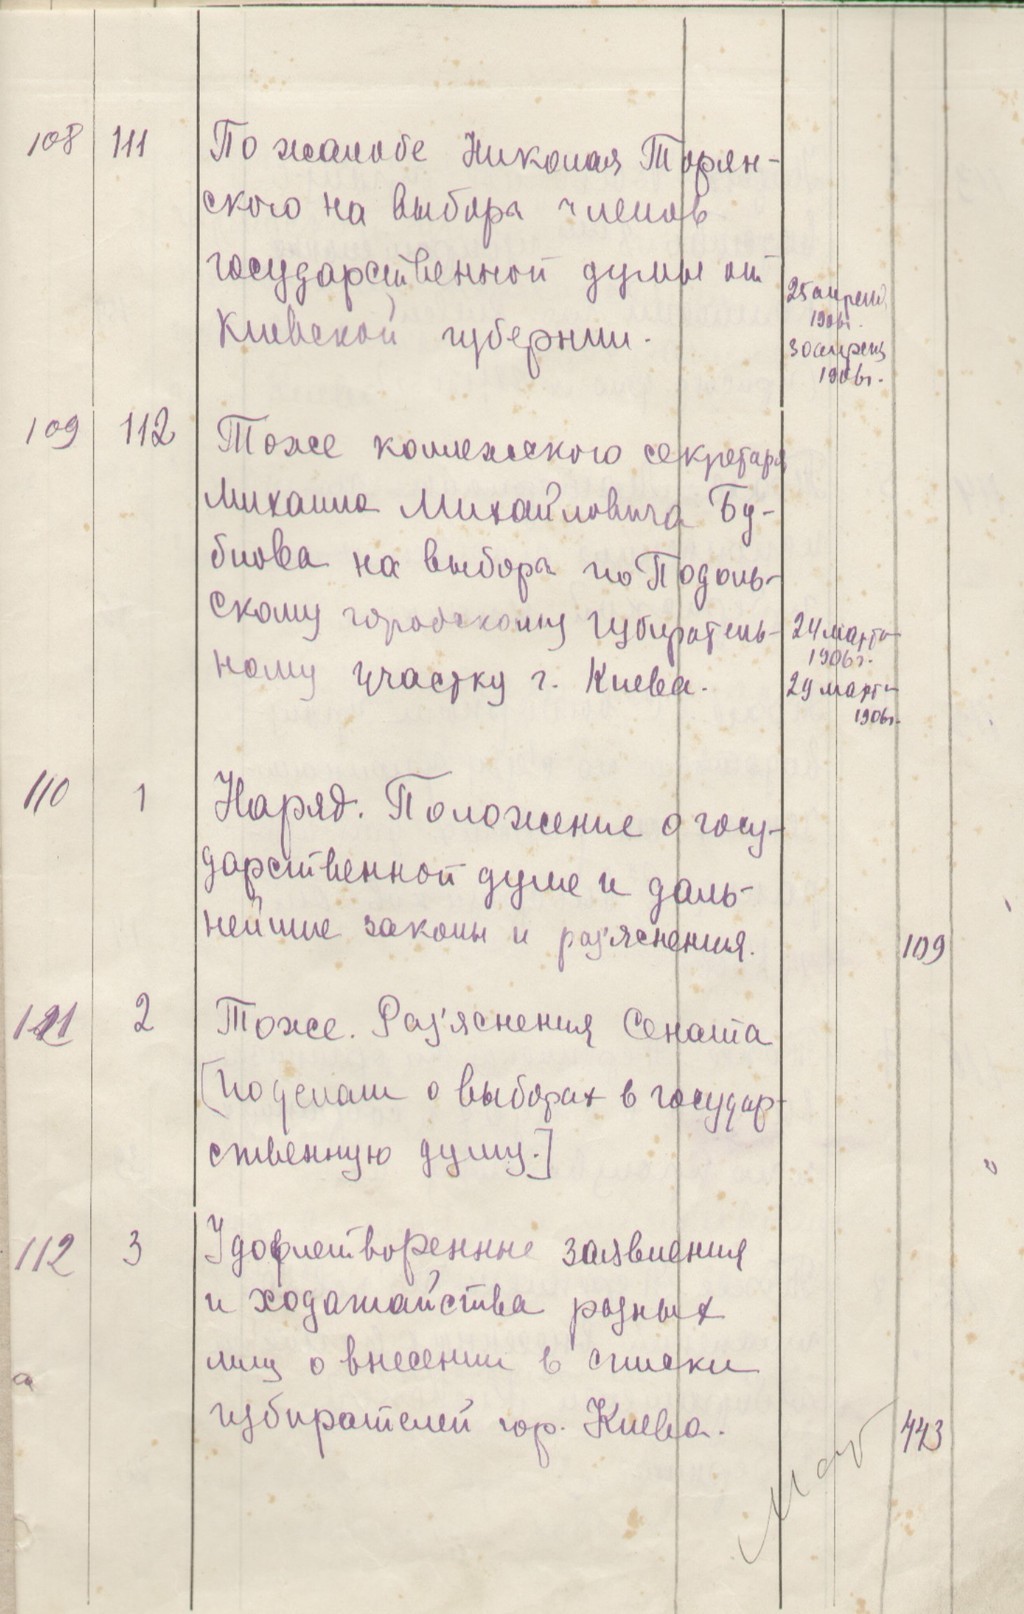 108 111 По жалобе Николая Торян-
ского на выбора членов
государственной думы от
Киевской губернии.
25 апреля
1906г.
30 апреля
1906г.
109 112 Тоже коллежского секретаря
Михаила Михайловича Бу-
бнова на выбора по Подоль-
скому городскому избиратель-
ному участку г. Киева.
24 марта
1906г.
29 марта
1906г.
110 1 Наряд. Положение о госу-
дарственной думе и даль-
нейшие законы и раз'яснения.
109
111 2 Тоже. Раз'яснения Сената
[по делам о выборах в государ-
ственную думу.]
112 3 Удофлетворенные заявления
и ходатайства разных
лиц о внесении в списки
избирателей гор. Киева.
443